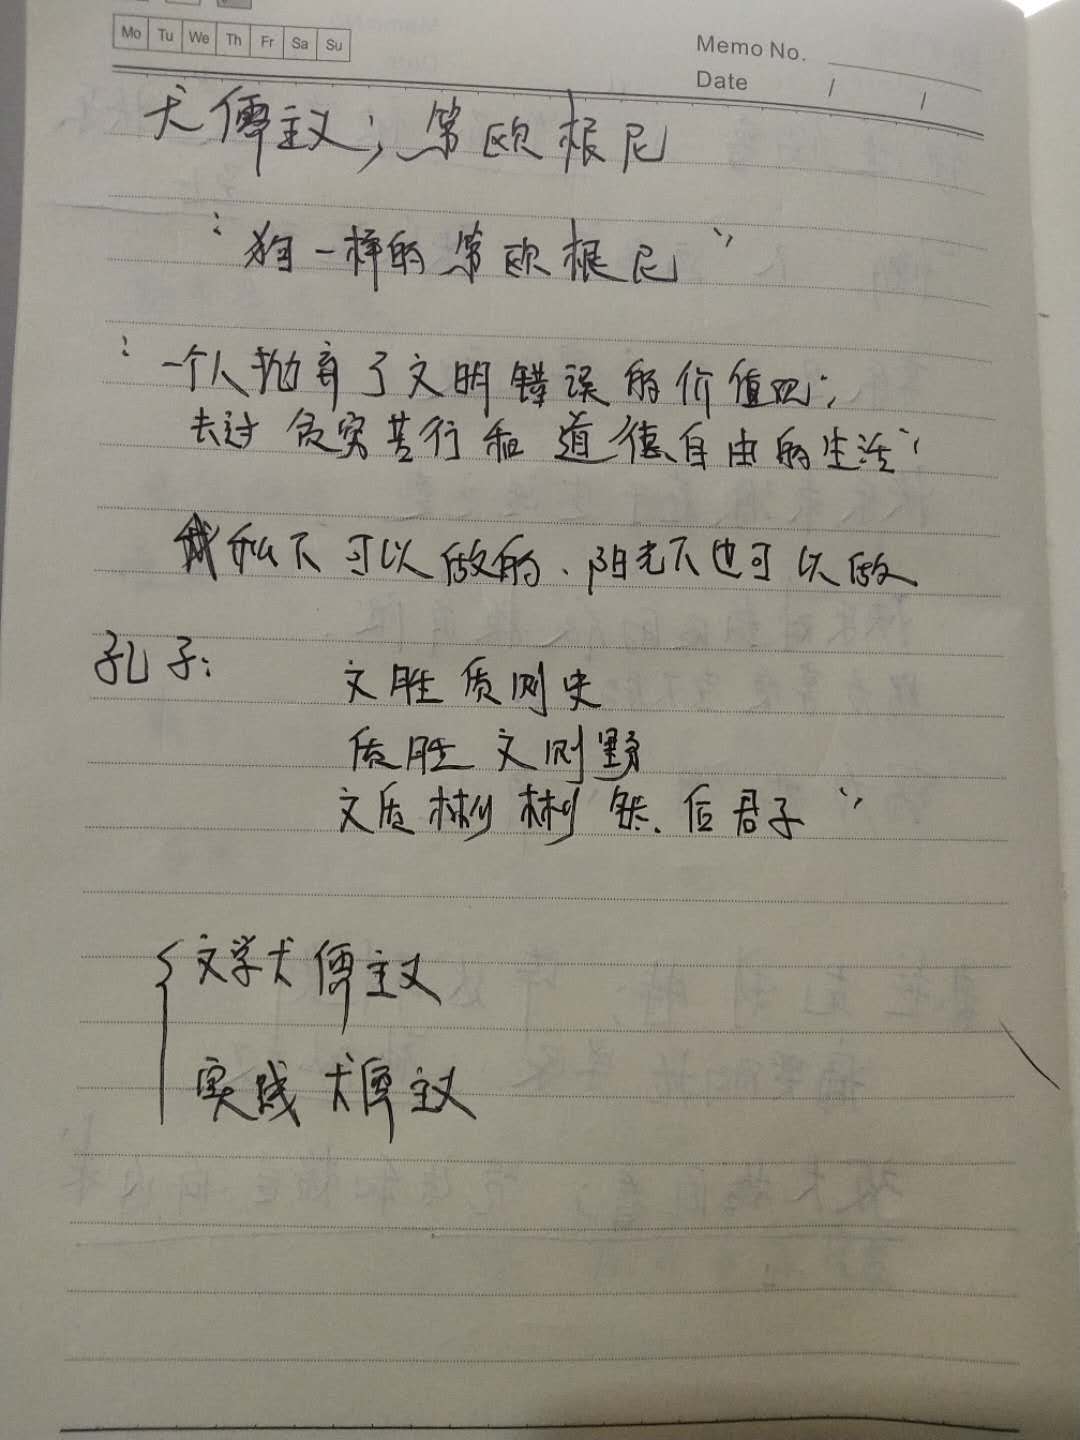 Mo Tu We Th Fr Sa Su
Memo No.
Date / /
犬儒主义；第欧根尼
“狗一样的第欧根尼”
“一个人抛弃了文明错误的价值观；
去过贫穷苦行和道德自由的生活”
我私下可以做的、阳光下也可以做
孔子：
文胜质则史
质胜文则野
文质彬彬然、后君子”
文学犬儒主义
实践犬儒主义